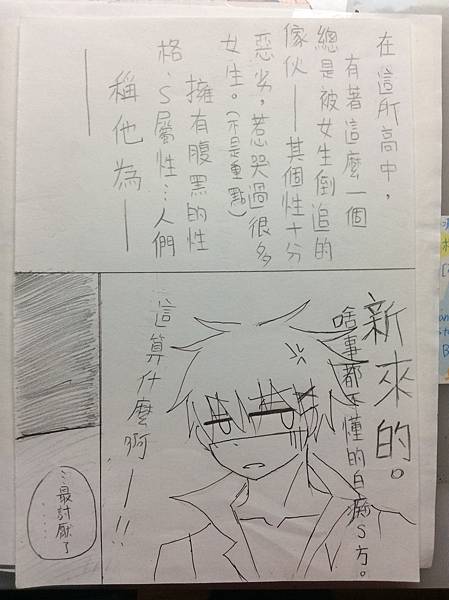 在這所高中，
有著這麼一個
總是被女生倒追的
傢伙——其個性十分
惡劣，惹哭過很多
女生。(不是重點)
擁有腹黑的性
格、S屬性…人們
稱他為——
——
新來的。
啥事都不懂的白痴S方。
這算什麼啊——!!
…最討厭了
……